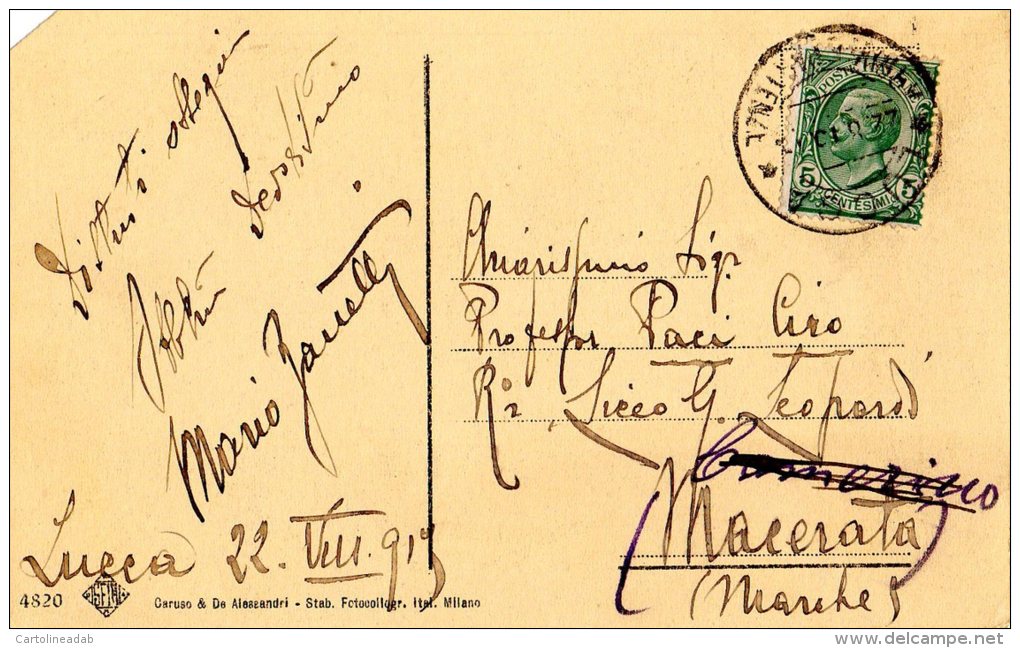 Distinti ossequi
Mario Zanelli
Lucca 22. VIII. 913
4820
Caruso & De Alessandri - Stab. Fotocollogr. Ital. Milano
POSTE
5 5
CENTESIMI
Chiarissimo Sig.
Professor Paci Ciro
Rº Liceo G. Leopardi
Camerino
(Macerata)
(Marche)
Cartolineadab
delcampe.net